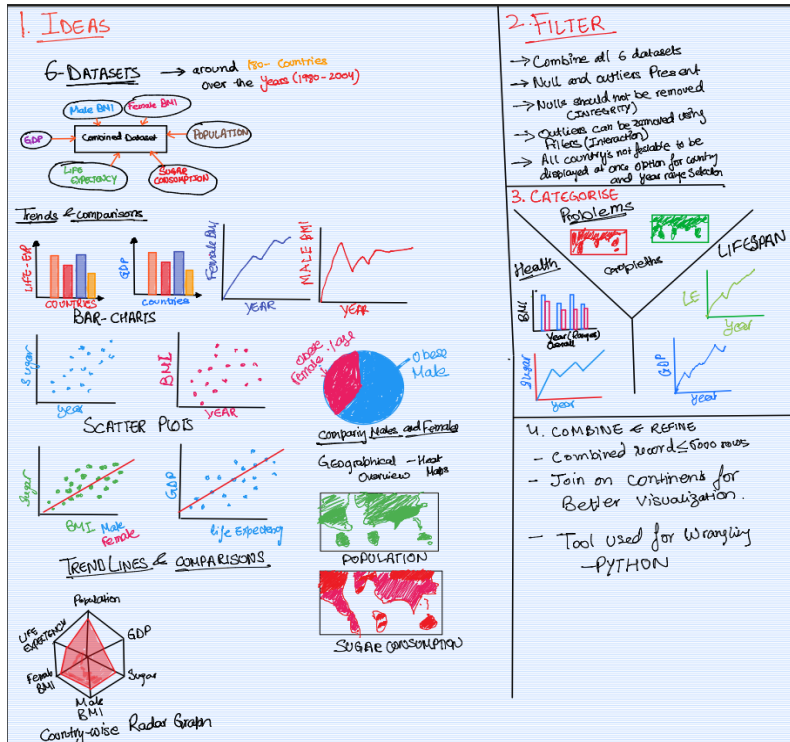 1. IDEAS
6-DATASETS → around 180- Countries
over the Years (1980-2004)
Male BMI
Female BMI
GDP
Combined Dataset
POPULATION
LIFE
EXPETENCY
SUGAR
CONSUMPTION
Trends & comparisons
LIFE-EXP
COUNTRIES
GDP
Countries
Female BMI
YEAR
MALE BMI
YEAR
BAR-CHARTS
Sugar
year
BMI
YEAR
SCATTER PLOTS
obese
Female
obese
Male
Comparing Males and Females
Sugar
BMI Male
Female
GDP
life Expectency
TREND LINES & COMPARISONS
Geographical - Heat
Overview Maps
POPULATION
SUGAR CONSUMPTION
Population
GDP
Sugar
Male
BMI
Female
BMI
LIFE
EXPETENCY
Country-wise Radar Graph
2. FILTER
→ Combine all 6 datasets
→ Null and outliers Present
→ Nulls should not be removed
(INTEGRITY)
→ Outliers can be removed using
Filters (Interaction)
→ All country's not feasable to be
displayed at once option for country
and year range Selection
3. CATEGORISE
Problems
Health
LIFESPAN
BMI
Year (Ranges)
Overall
Sugar
year
LE
Year
GDP
Year
4. COMBINE & REFINE
- Combined record ≤ 5000 rows
- Join on continents for
Better Visualization.
- Tool used for Wrangling
-PYTHON